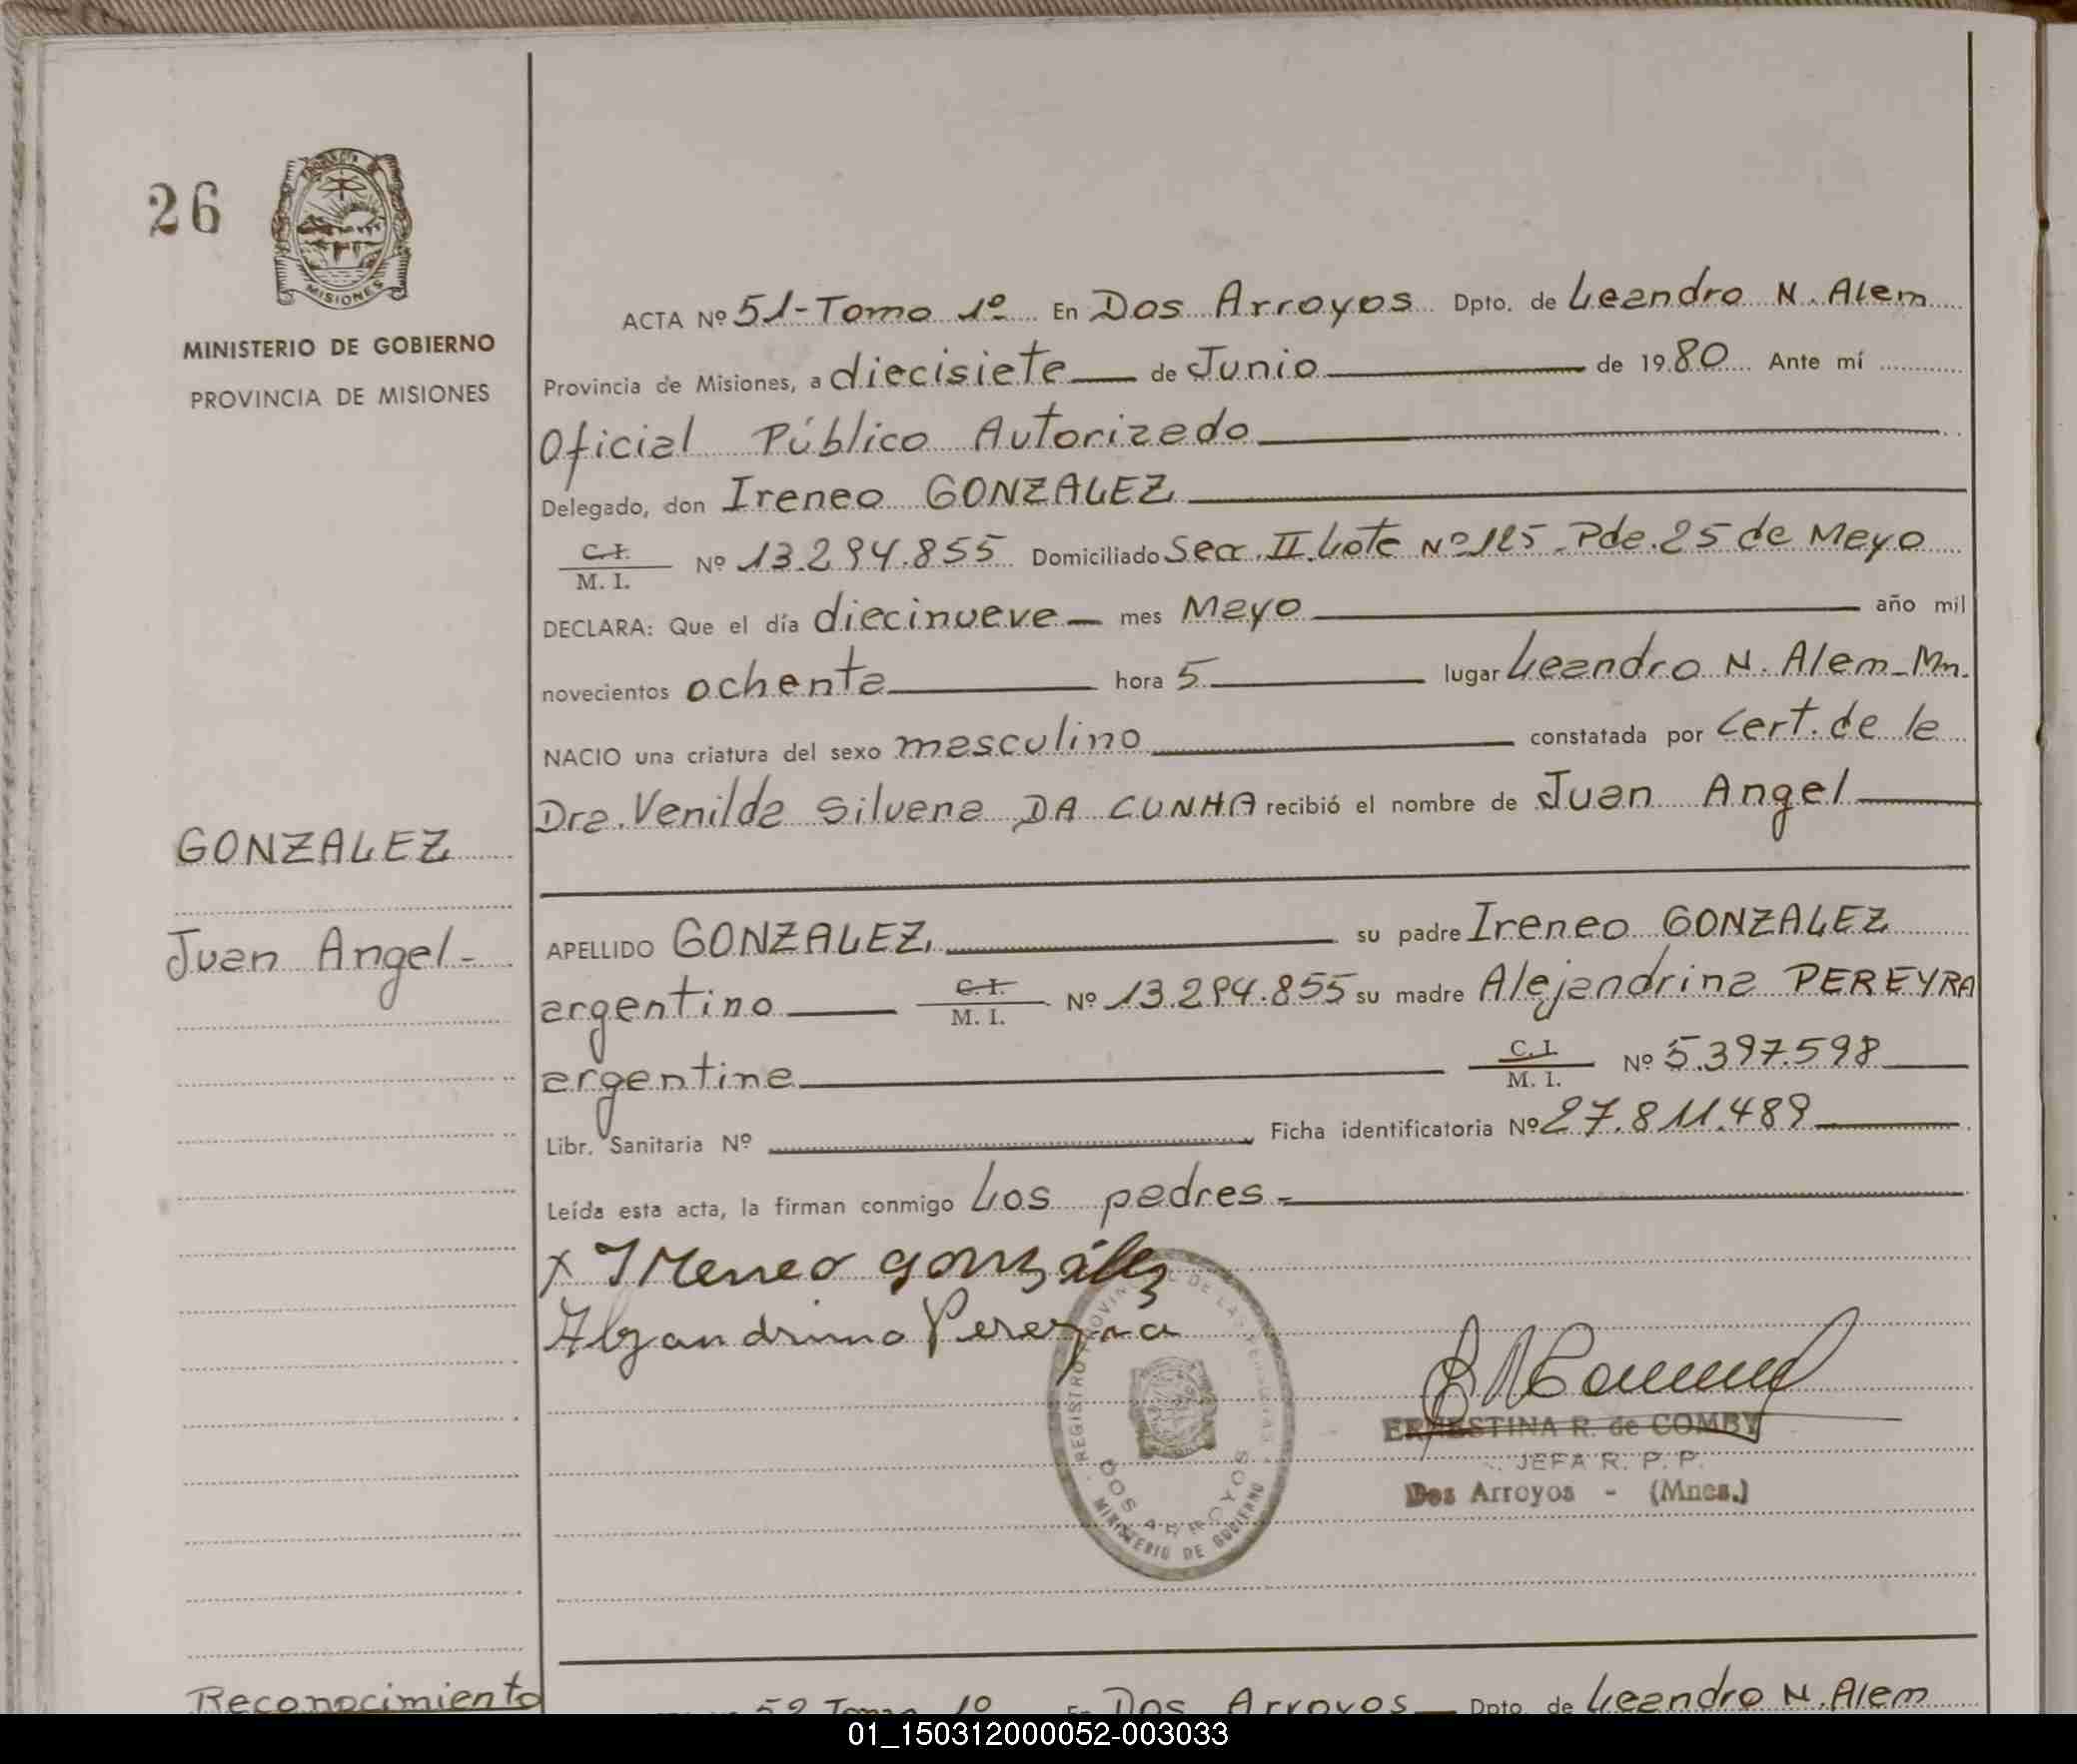 26
MISIONES
MINISTERIO DE GOBIERNO
PROVINCIA DE MISIONES
ACTA Nº 51-Tomo 1º En Dos Arroyos Dpto. de Leandro N. Alem
Provincia de Misiones, a diecisiete de Junio de 1980 Ante mí
Oficial Público Autorizado
Delegado, don Ireneo GONZALEZ
C.I.
M. I. Nº 13.294.855 Domiciliado Secc. II. Lote Nº 125 - Pde. 25 de Mayo
DECLARA: Que el día diecinueve mes Mayo año mil
novecientos ochenta hora 5 lugar Leandro N. Alem - Mn.
NACIO una criatura del sexo masculino constatada por Cert. de la
Dra. Venilda Silvana DA CUNHA recibió el nombre de Juan Angel
GONZALEZ
Juan Angel-
APELLIDO GONZALEZ, su padre Ireneo GONZALEZ
argentino C.I. M. I. Nº 13.294.855 su madre Alejandrina PEREYRA
argentina C.I. M. I. Nº 5.397.598
Libr. Sanitaria Nº Ficha identificatoria Nº 27.811.489
Leída esta acta, la firman conmigo Los padres-
x Ireneo gonzález
Alejandrina Pereyra
ERNESTINA R. de COMBY
JEFA R. P. P.
Dos Arroyos - (Mnes.)
DOS ARROYOS
MINISTERIO DE GOBIERNO
Reconocimiento
52 Tomo 1º En Dos Arroyos Dpto. de Leandro N. Alem
01_150312000052-003033